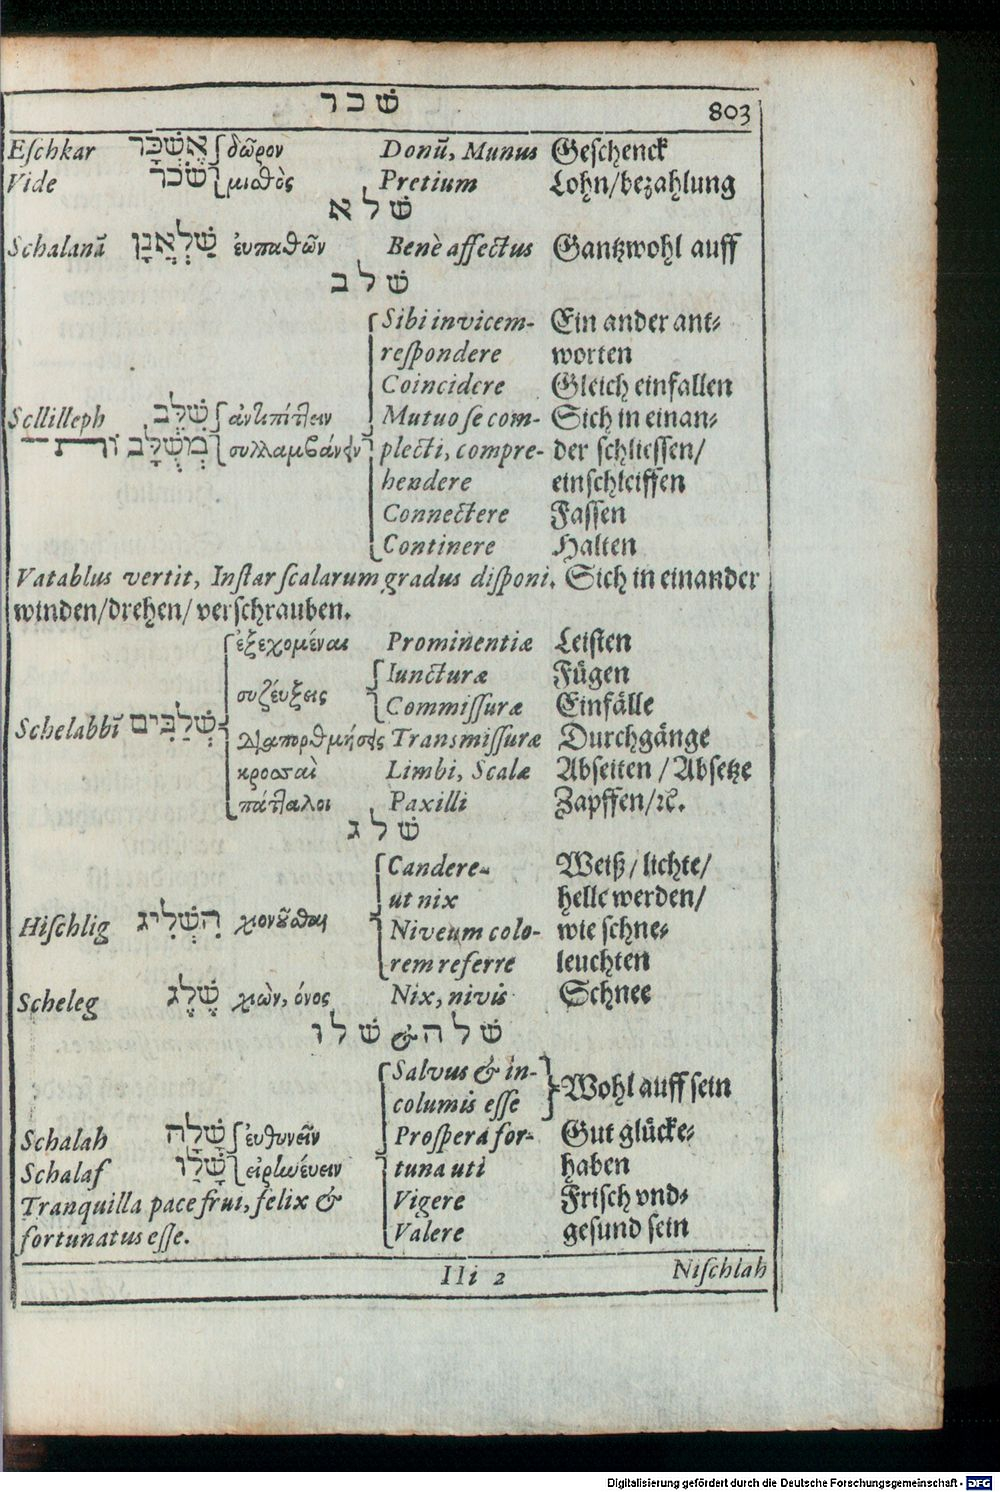 שׁכר
803
Eſchkar אֶשְׁכָּר δῶρον Donū, Munus Geſchenck
Vide שׂכר μισθὸς Pretium Lohn/bezahlung
שׁלא
Schalanā שַׁלְאֲנָן ἐυπαθῶν Benè affectus Gantzwohl auff
שׁלב
Sibi invicem- Ein ander ant-
reſpondere worten
Coincidere Gleich einfallen
Scllilleph שִׁלֵּב ἀντιπίπτειν Mutuo ſe com- Sich in einan-
מְשֻׁלָּב συλλαμβάνειν plecti, compre- der ſchlieſſen/
hendere einſchleiffen
Connectere Faſſen
Continere Halten
Vatablus vertit, Inſtar ſcalarum gradus diſponi. Sich in einander
winden/drehen/ verſchrauben.
ἐξεχομέναι Prominentiæ Leiſten
Iuncturæ Fügen
συζέυξεις Commiſſuræ Einfälle
Schelabbī שְׁלַבִּים διαπορθμήσεις Transmiſſuræ Durchgänge
κροσσαὶ Limbi, Scalæ Abſeiten / Abſetze
πάτταλοι Paxilli Zapffen/ꝛc.
שׁלג
Candere- Weiß/ lichte/
ut nix helle werden/
Hiſchlig הִשְׁלִיג χιονοῦσθαι Niveum colo- wie ſchne-
rem referre leuchten
Scheleg שֶׁלֶג χιὼν, όνος Nix, nivis Schnee
שׁלה & שׁלו
Salvus & in- Wohl auff ſein
columis eſſe
Schalah שָׁלָה ἐυθυνεῖν Proſpera for- Gut glücke-
Schalaf שָׁלַו εἰρηνέυειν tuna uti haben
Tranquilla pace frui, felix & Vigere Friſch vnd-
fortunatus eſſe. Valere geſund ſein
Iii 2 Niſchlah
Digitalisierung gefördert durch die Deutsche Forschungsgemeinschaft - DFG